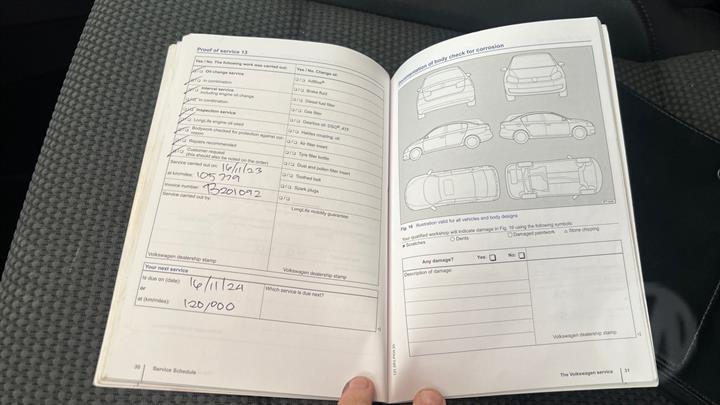 Proof of service 13
Yes / No. The following work was carried out:
Yes / No. Change of:
Oil change service
AdBlue®
in combination
Brake fluid
Interval service
including engine oil change
Diesel fuel filter
in combination
Gas filter
Inspection service
Gearbox oil: DSG®, AT5
LongLife engine oil used
Haldex coupling: oil
Bodywork checked for protection against corrosion
Air filter insert
Repairs recommended
Tyre filler bottle
Customer request
(this should also be noted on the order)
Dust and pollen filter insert
Service carried out on: 16/11/23
Toothed belt
at km/miles: 105779
Spark plugs
Invoice number: B201092
Service carried out by:
LongLife mobility guarantee
Volkswagen dealership stamp
Volkswagen dealership stamp
Your next service
Is due on (date): 16/11/24
Which service is due next?
or
at (km/miles): 120,000
30 Service Schedule
of body check for corrosion
Fig. 16 Illustration valid for all vehicles and body designs
Your qualified workshop will indicate damage in Fig. 16 using the following symbols:
Scratches
Dents
Damaged paintwork
Stone chipping
Any damage? Yes: No:
Description of damage:
Volkswagen dealership stamp
The Volkswagen service 31